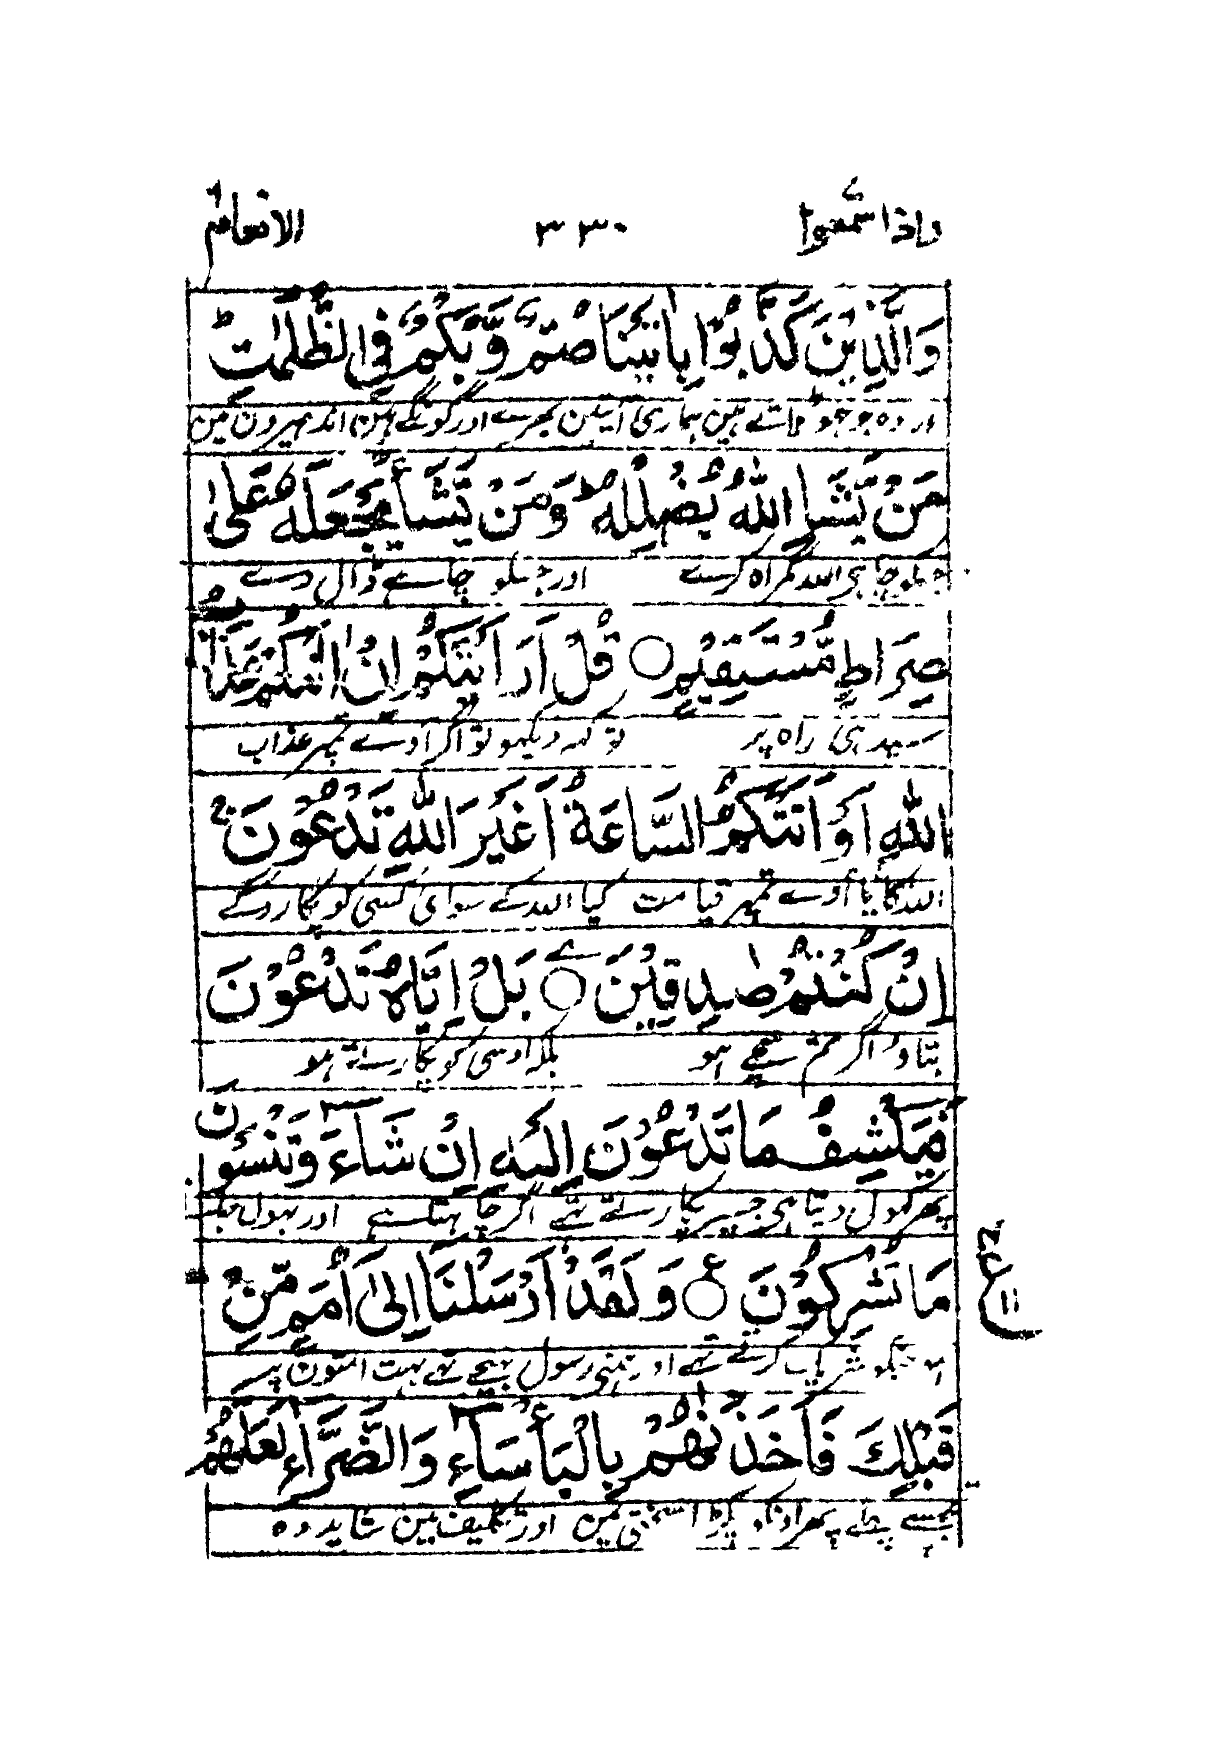 واذا سمعوا ٧ ٣٣٠ الانعام ٦
وَالَّذِيْنَ كَذَّبُوْا بِاٰيٰتِنَا صُمٌّ وَّبُكْمٌ فِي الظُّلُمٰتِ ؕ
اور وہ جو جھوٹلاتے ہین ہماری آیتین بھرے اور گونگے ہین اندھیرون مین
مَنْ يَّشَاِ اللّٰهُ يُضْلِلْهُ ؕ وَمَنْ يَّشَاْ يَجْعَلْهُ عَلٰى
جسکو چاہی اللہ گمراہ کرے اور جسکو چاہے ڈال دے
صِرَاطٍ مُّسْتَقِيْمٍ ○ قُلْ اَرَءَيْتَكُمْ اِنْ اَتٰىكُمْ عَذَابُ
سیدہی راہ پر تو کہہ دیکھو تو اگر آوے تمپر عذاب
اللّٰهِ اَوْ اَتَتْكُمُ السَّاعَةُ اَغَيْرَ اللّٰهِ تَدْعُوْنَ ۚ
اللہ کا یا آوے تمپر قیامت کیا اللہ کے سوای کسی کو پکاروگے
اِنْ كُنْتُمْ صٰدِقِيْنَ ○ بَلْ اِيَّاهُ تَدْعُوْنَ
بتاو اگر تم سچے ہو بلکہ اوسی کو پکارتے ہو
فَيَكْشِفُ مَا تَدْعُوْنَ اِلَيْهِ اِنْ شَآءَ وَتَنْسَوْنَ
پھر کھول دیتا ہی جسپر پکارتے تھے اگر چاہتا ہے اور بھول
مَا تُشْرِكُوْنَ ○ ع وَلَقَدْ اَرْسَلْنَا اِلٰٓى اُمَمٍ مِّنْ
جنکو شریک کرتے تھے اور ہمنی رسول بھیجے تھے بہت امتون پر
ع ١١
قَبْلِكَ فَاَخَذْنٰهُمْ بِالْبَاْسَآءِ وَالضَّرَّآءِ لَعَلَّهُمْ
تجسے پہلے پھر اونکو پکڑا سختی مین اور تکلیف مین شاید وہ